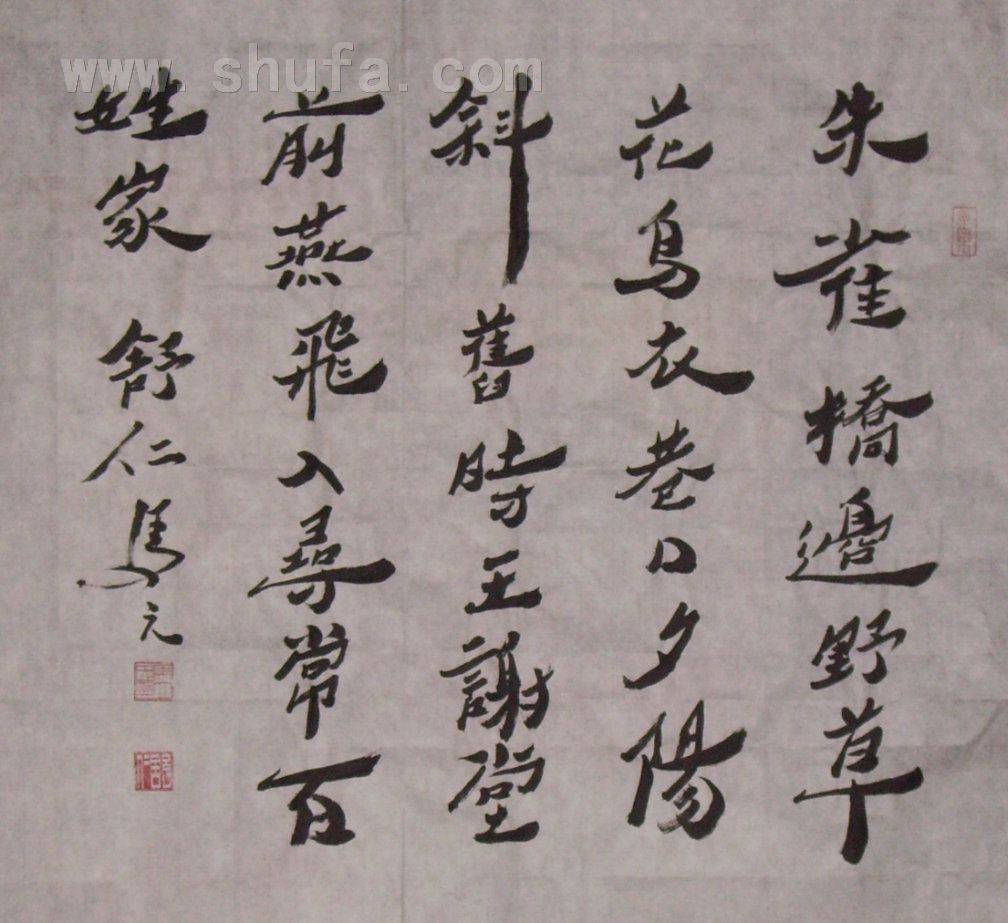 www.shufa.com
朱雀橋邊野草
花烏衣巷口夕陽
斜舊時王謝堂
前燕飛入尋常百
姓家 舒仁馬元